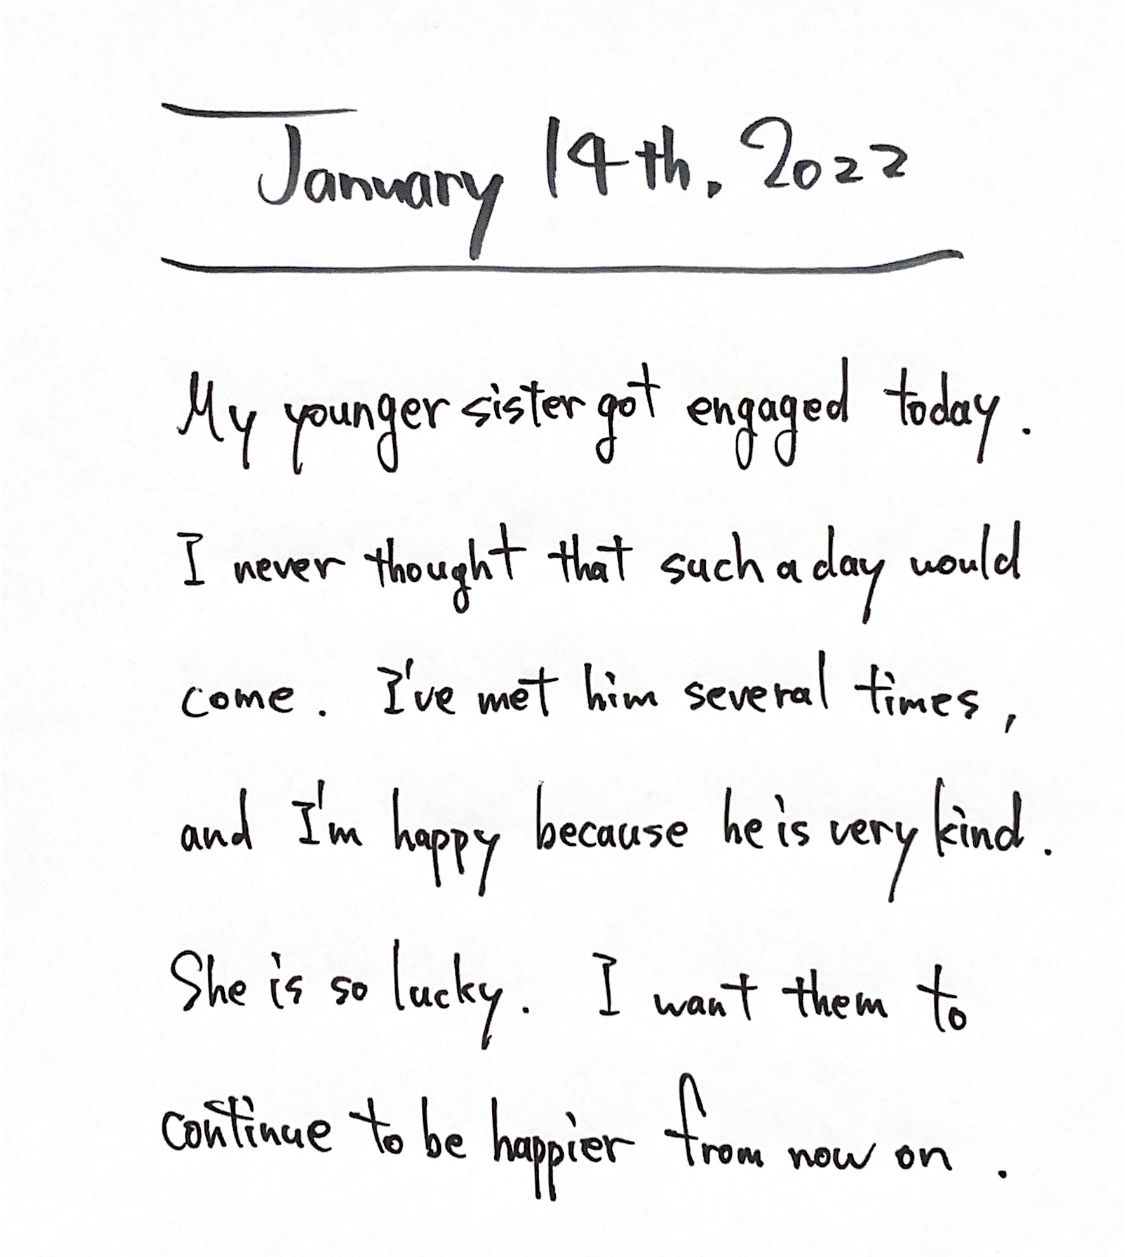 January 14th, 2022
My younger sister got engaged today.
I never thought that such a day would
come. I've met him several times,
and I'm happy because he is very kind.
She is so lucky. I want them to
continue to be happier from now on.